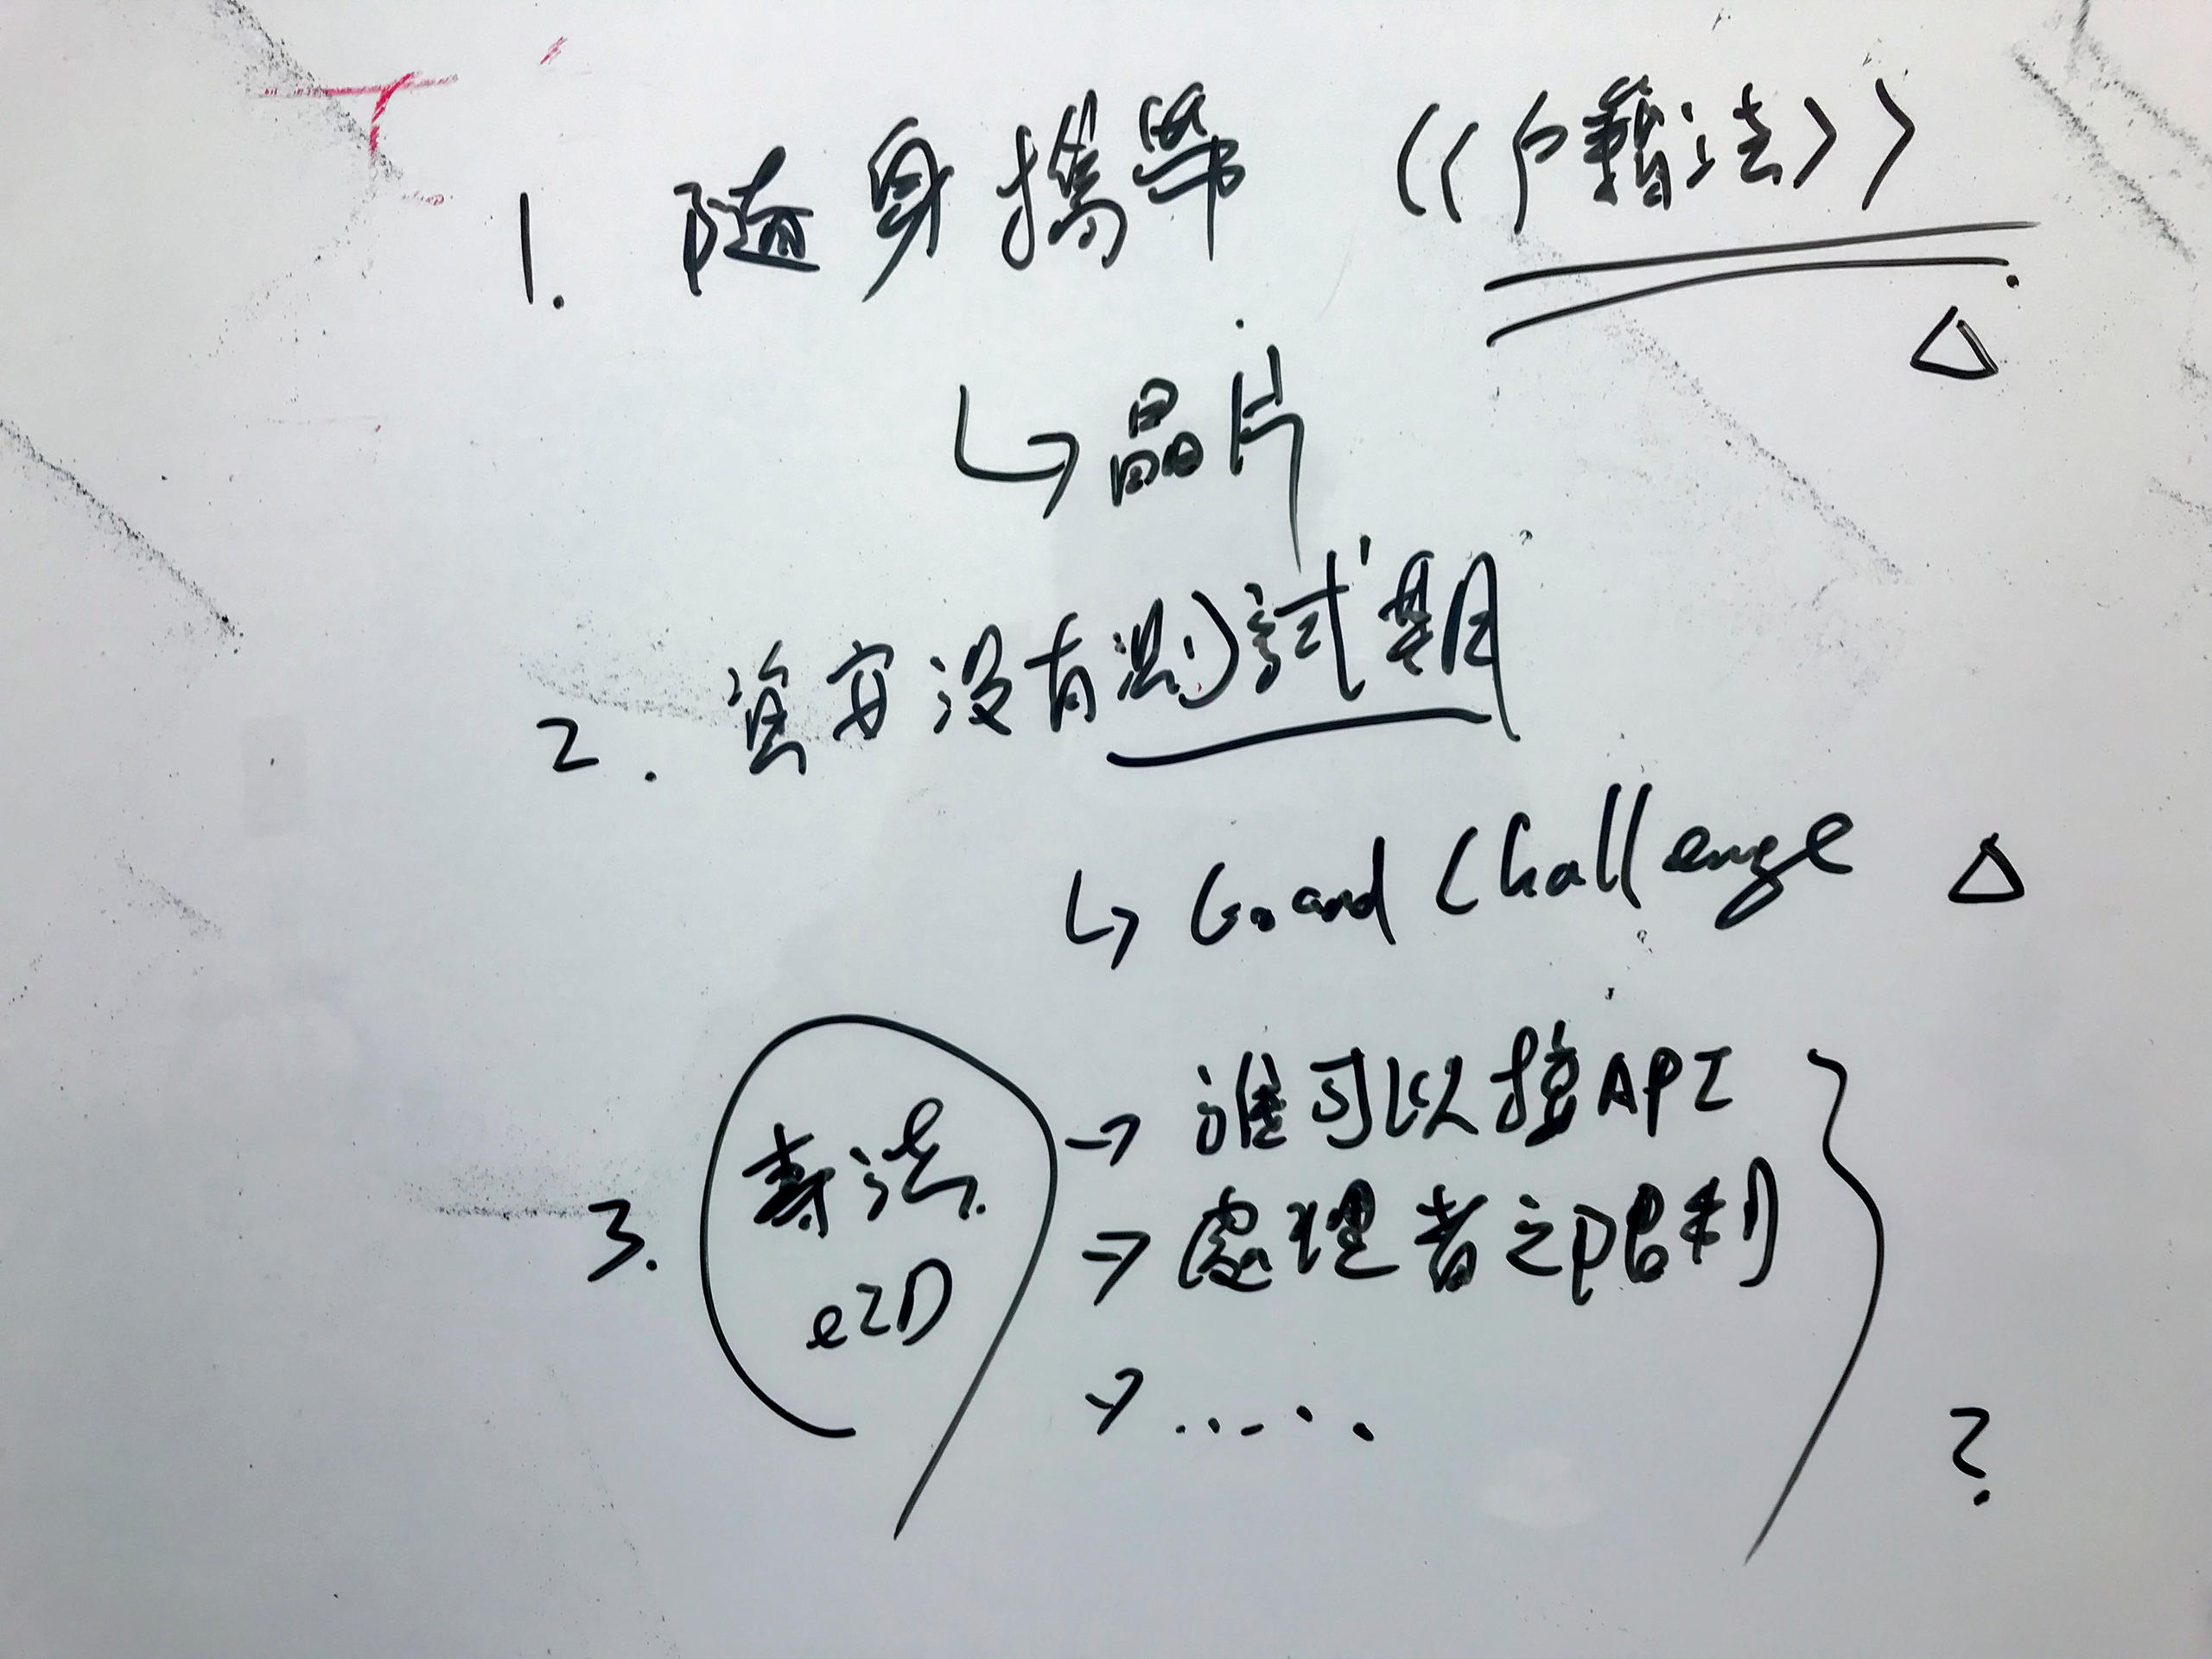 1. 隨身攜帶 《戶籍法》
↳ 晶片 △
2. 資安沒有測試期
↳ Grand Challenge △
3. 專法 eID
→ 誰可以接API
→ 處理者之限制
→ ......
?